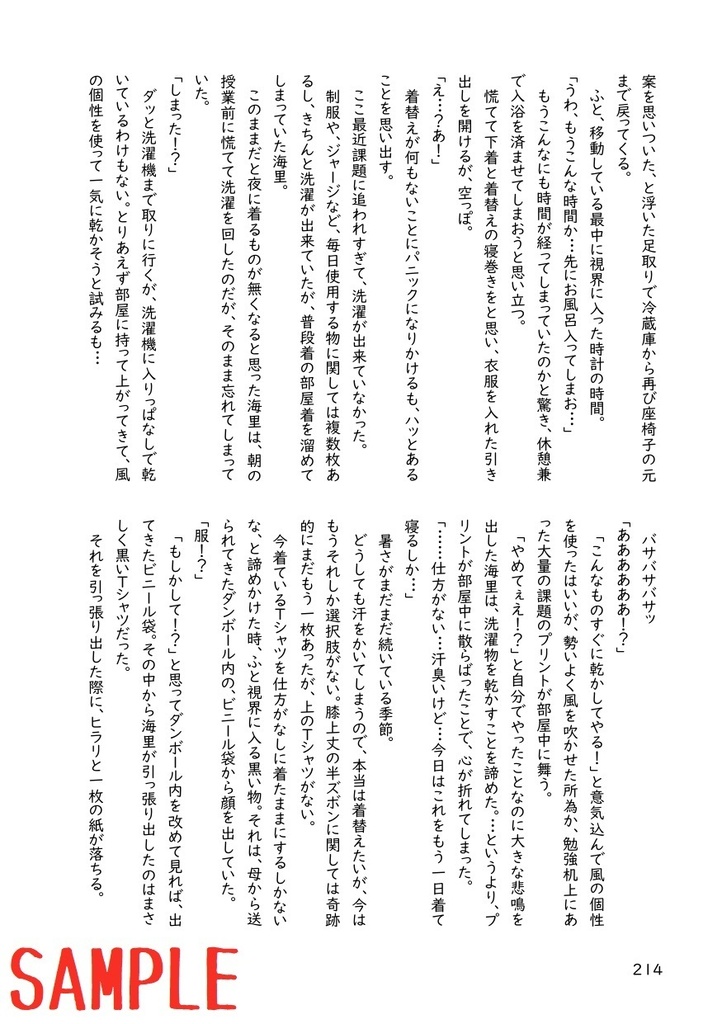 案を思いついた、と浮いた足取りで冷蔵庫から再び座椅子の元
まで戻ってくる。
ふと、移動している最中に視界に入った時計の時間。
「うわ、もうこんな時間か…先にお風呂入ってしまお…」
もうこんなにも時間が経ってしまっていたのかと驚き、休憩兼
で入浴を済ませてしまおうと思い立つ。
慌てて下着と着替えの寝巻きをと思い、衣服を入れた引き
出しを開けるが、空っぽ。
「え…？あ！」
着替えが何もないことにパニックになりかけるも、ハッとある
ことを思い出す。
ここ最近課題に追われすぎて、洗濯が出来ていなかった。
制服や、ジャージなど、毎日使用する物に関しては複数枚あ
るし、きちんと洗濯が出来ていたが、普段着の部屋着を溜めて
しまっていた海里。
このままだと夜に着るものが無くなると思った海里は、朝の
授業前に慌てて洗濯を回したのだが、そのまま忘れてしまって
いた。
「しまった！？」
ダッと洗濯機まで取りに行くが、洗濯機に入りっぱなしで乾
いているわけもない。とりあえず部屋に持って上がってきて、風
の個性を使って一気に乾かそうと試みるも…
バサバサバサッ
「ああああああ！？」
「こんなものすぐに乾かしてやる！」と意気込んで風の個性
を使ったはいいが、勢いよく風を吹かせた所為か、勉強机上にあ
った大量の課題のプリントが部屋中に舞う。
「やめてぇえ！？」と自分でやったことなのに大きな悲鳴を
出した海里は、洗濯物を乾かすことを諦めた。…というより、プ
リントが部屋中に散らばったことで、心が折れてしまった。
「……仕方がない…汗臭いけど…今日はこれをもう一日着て
寝るしか…」
暑さがまだまだ続いている季節。
どうしても汗をかいてしまうので、本当は着替えたいが、今は
もうそれしか選択肢がない。膝上丈の半ズボンに関しては奇跡
的にまだもう一枚あったが、上のTシャツがない。
今着ているTシャツを仕方がなしに着たままにするしかない
な、と諦めかけた時、ふと視界に入る黒い物。それは、母から送
られてきたダンボール内の、ビニール袋から顔を出していた。
「服！？」
「もしかして！？」と思ってダンボール内を改めて見れば、出
てきたビニール袋。その中から海里が引っ張り出したのはまさ
しく黒いTシャツだった。
それを引っ張り出した際に、ヒラリと一枚の紙が落ちる。
214
SAMPLE